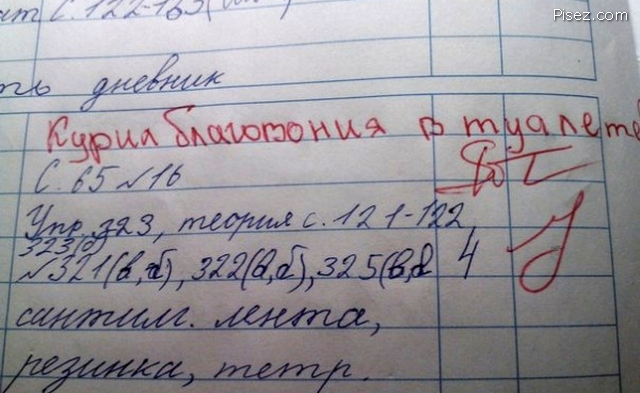 Pisez.com
с. 122-163(
ть дневник
Курил благовония в туалете
С. 65 №16
Упр. 323, теория с. 121-122,
323(б)
№321(в,б), 322(а,б), 325(в, 4
сантим. лента,
резинка, тетр.